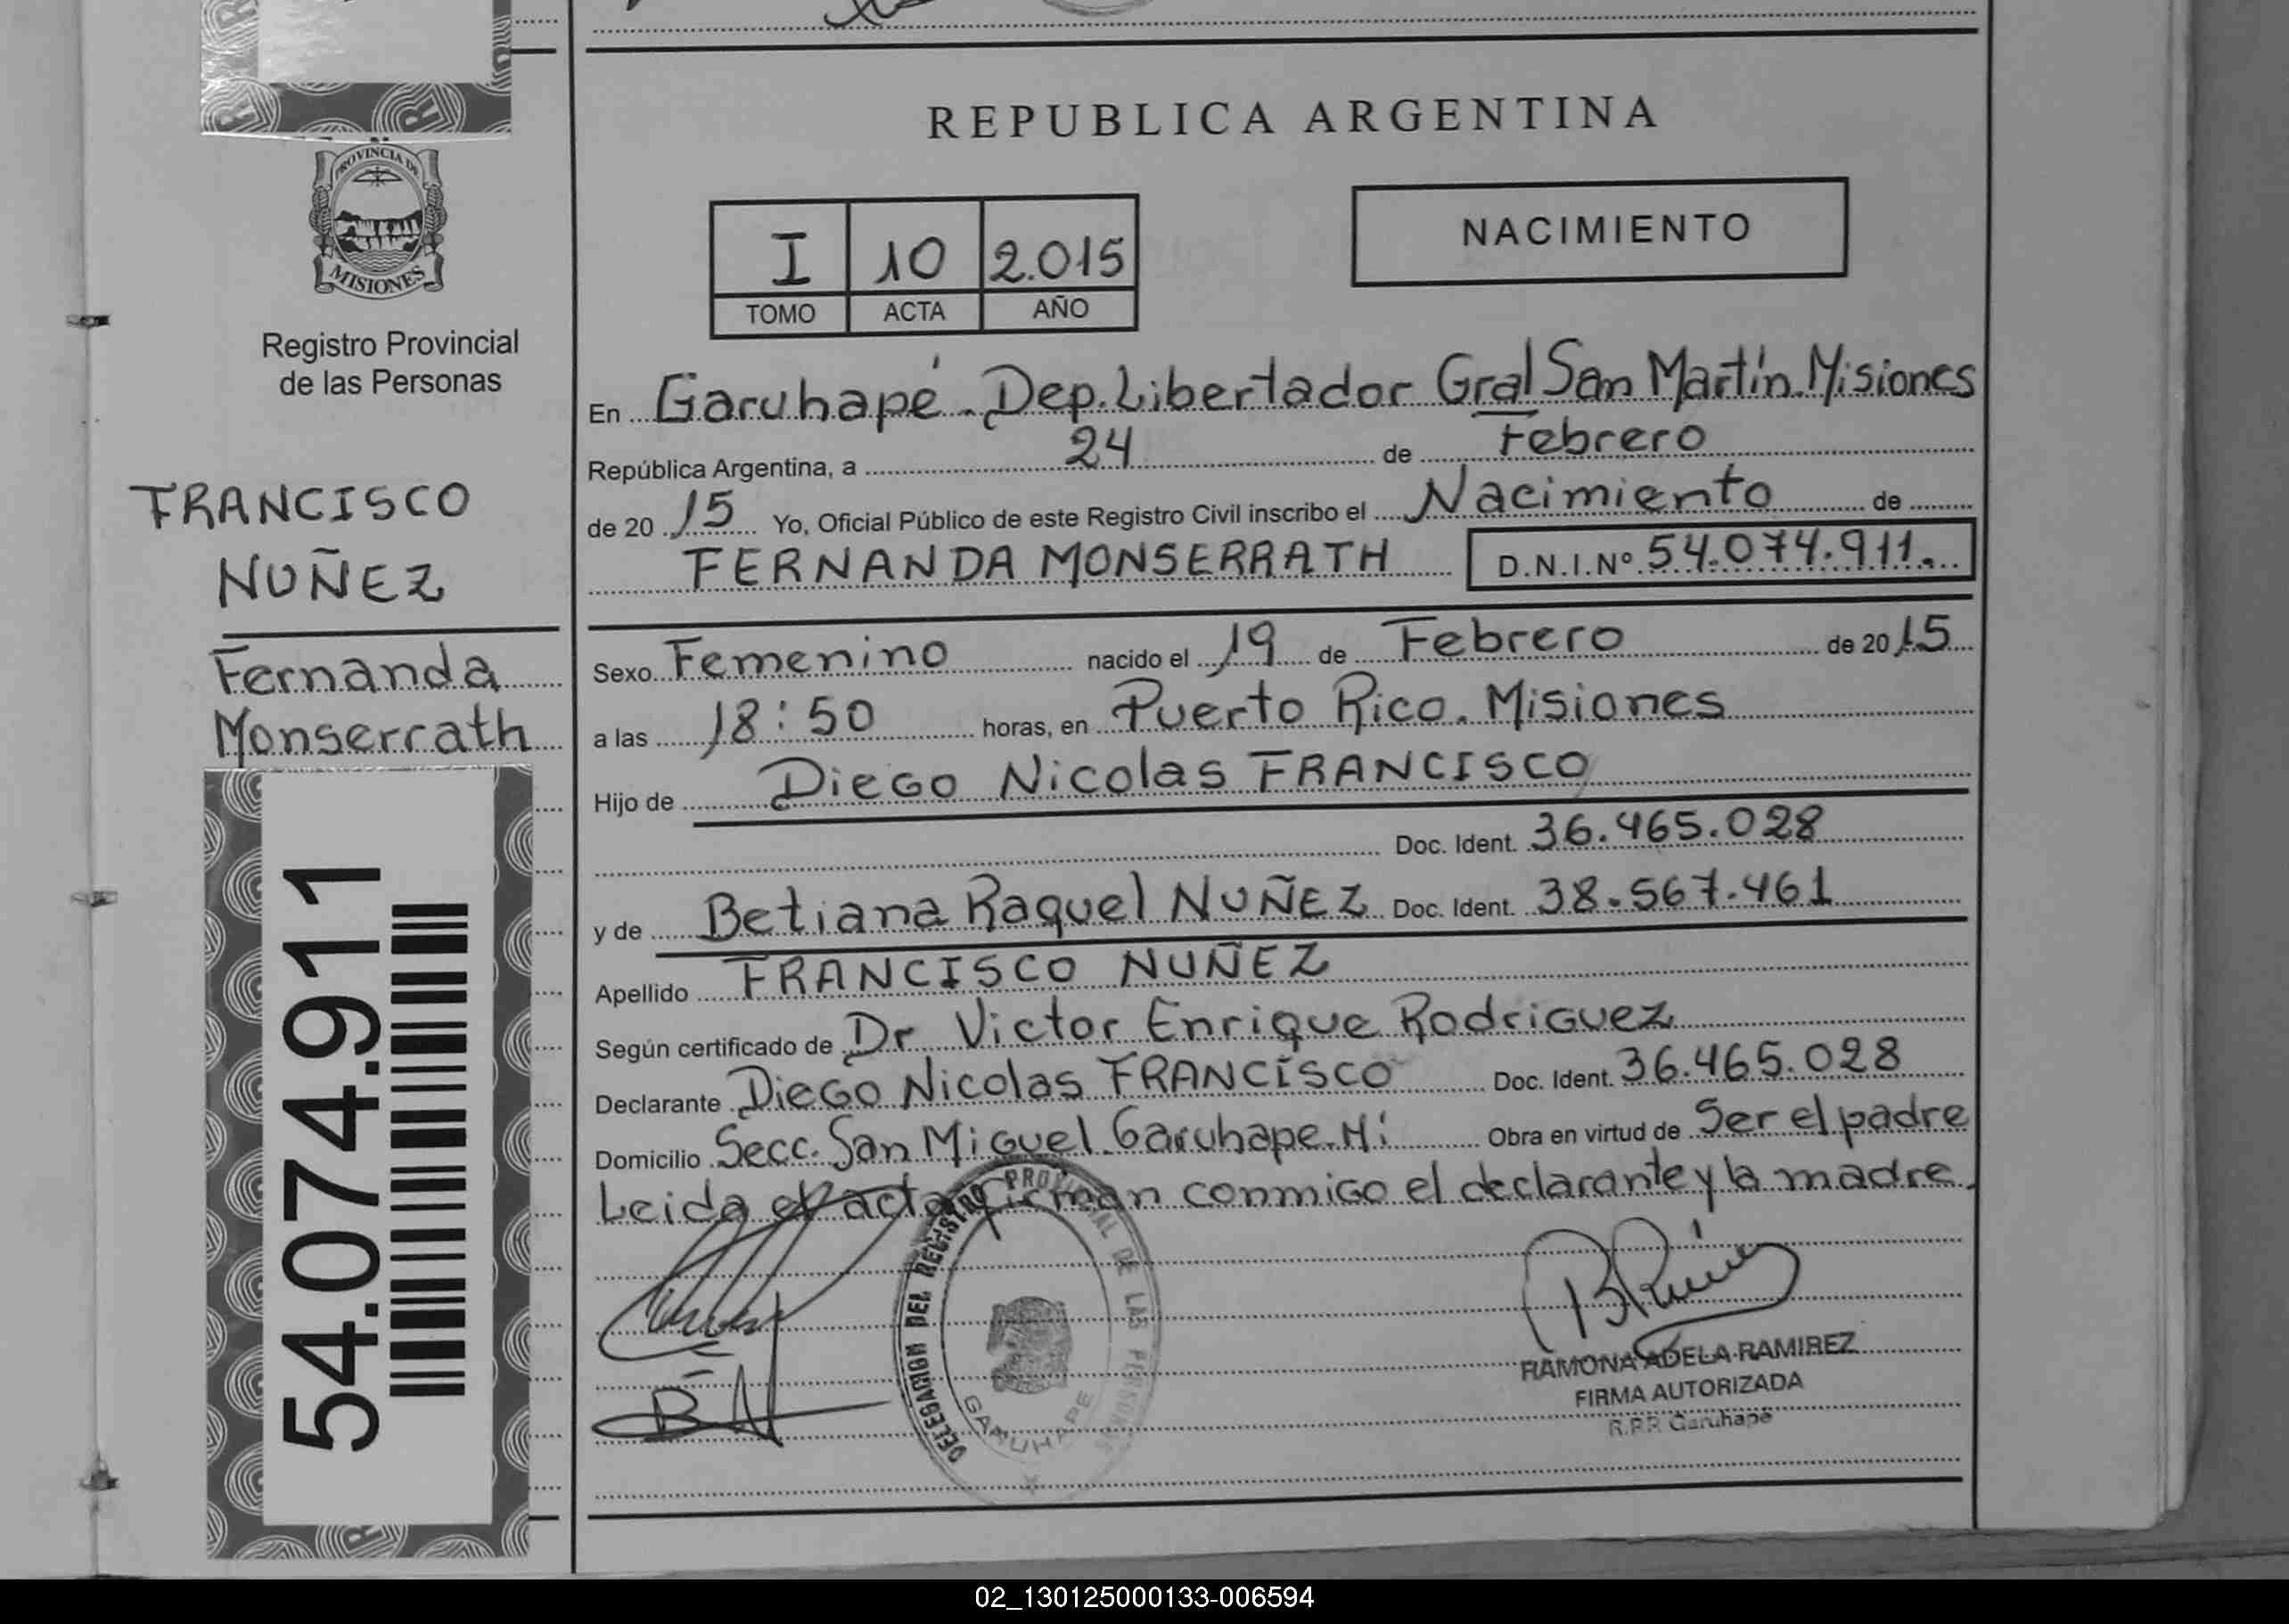 PROVINCIA DE
MISIONES
Registro Provincial
de las Personas
FRANCISCO
NUÑEZ
Fernanda
Monserrath
54.074.911
REPUBLICA ARGENTINA
I 10 2.015
TOMO ACTA AÑO
NACIMIENTO
En Garuhapé. Dep. Libertador Gral San Martín. Misiones
República Argentina, a 24 de Febrero
de 20 15 Yo, Oficial Público de este Registro Civil inscribo el Nacimiento de
FERNANDA MONSERRATH D.N.I.Nº 54.074.911.
Sexo Femenino nacido el 19 de Febrero de 20 15
a las 18:50 horas, en Puerto Rico. Misiones
Hijo de Diego Nicolas FRANCISCO
Doc. Ident. 36.465.028
y de Betiana Raquel NUÑEZ Doc. Ident. 38.567.461
Apellido FRANCISCO NUÑEZ
Según certificado de Dr Victor Enrique Rodriguez
Declarante Diego Nicolas FRANCISCO Doc. Ident. 36.465.028
Domicilio Secc. San Miguel. Garuhape. Mi Obra en virtud de Ser el padre
Leida el acta firman conmigo el declarante y la madre.
DELEGACION DEL REGISTRO PROVINCIAL DE LAS PERSONAS
GARUHAPE
RAMONA ADELA RAMIREZ
FIRMA AUTORIZADA
R.P.P. Garuhapé
02_130125000133-006594